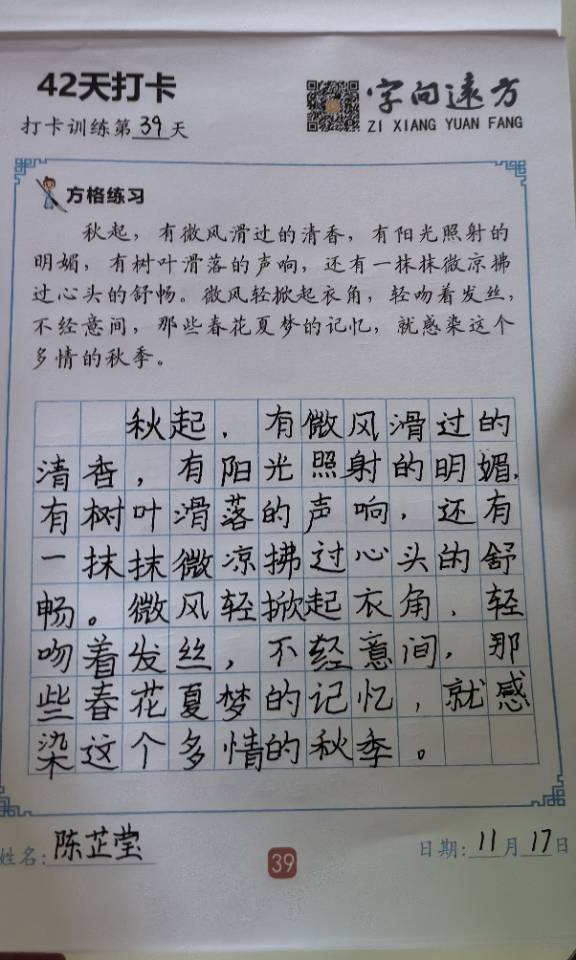 42天打卡
字向遠方
ZI XIANG YUAN FANG
打卡训练第39天
方格练习
秋起，有微风滑过的清香，有阳光照射的
明媚，有树叶滑落的声响，还有一抹抹微凉拂
过心头的舒畅。微风轻掀起衣角，轻吻着发丝，
不经意间，那些春花夏梦的记忆，就感染这个
多情的秋季。
秋起，有微风滑过的
清香，有阳光照射的明媚，
有树叶滑落的声响，还有
一抹抹微凉拂过心头的舒
畅。微风轻掀起衣角，轻
吻着发丝，不轻意间，那
些春花夏梦的记忆，就感
染这个多情的秋季。
姓名:陈芷莹
39
日期:11月17日